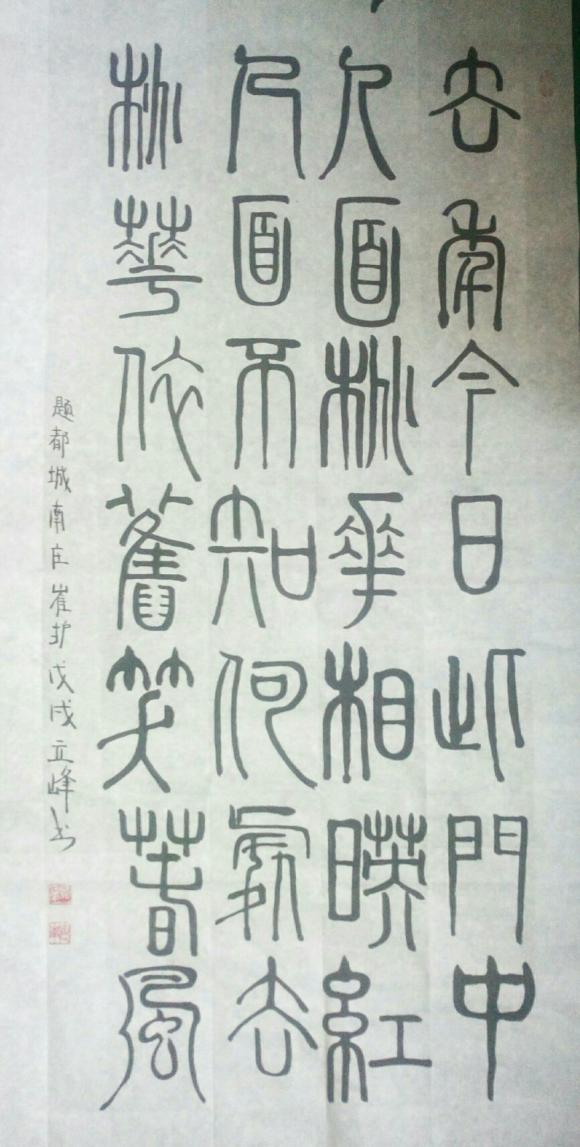 去年今日此門中
人面桃華相暎紅
人面不知何處去
桃華依舊笑春風
题都城南庄 崔护 戊戌 立峰书